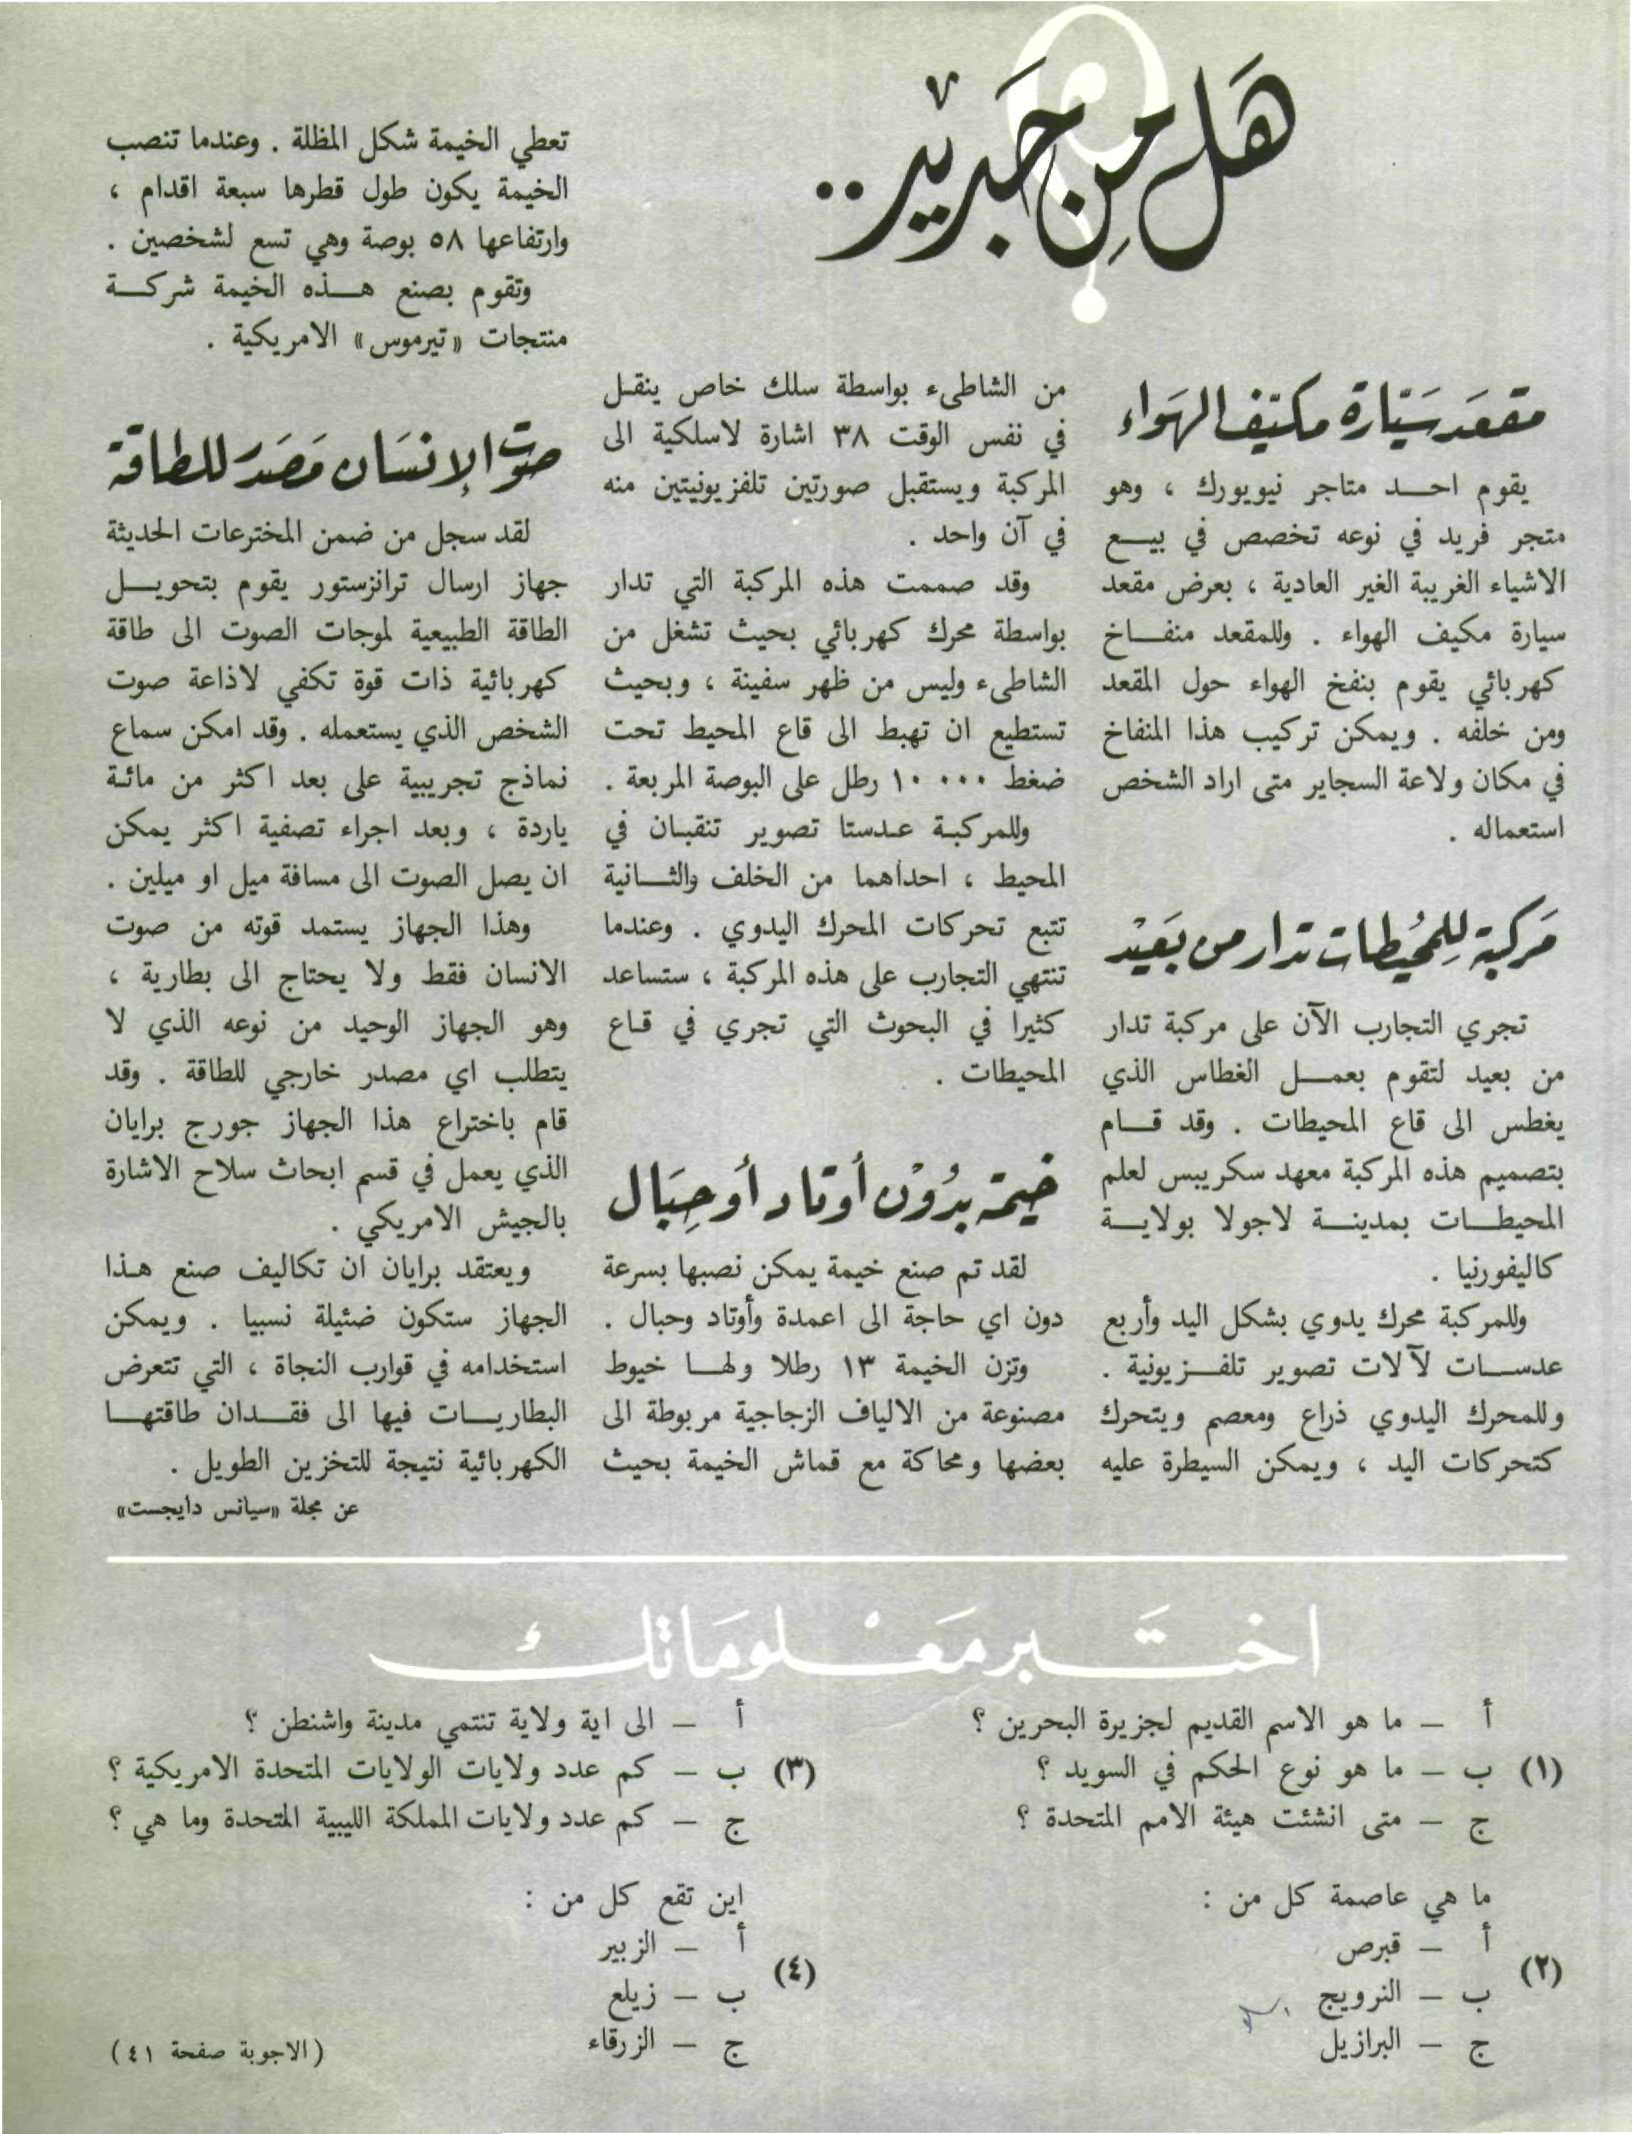 هل من جديد..
مقعد سيّارة مكيّف الهواء
يقوم احد متاجر نيويورك ، وهو
متجر فريد في نوعه تخصص في بيع
الاشياء الغريبة الغير العادية ، بعرض مقعد
سيارة مكيف الهواء . وللمقعد منفاخ
كهربائي يقوم بنفخ الهواء حول المقعد
ومن خلفه . ويمكن تركيب هذا المنفاخ
في مكان ولاعة السجاير متى اراد الشخص
استعماله .
مركبة للمحيطات تدار من بعيد
تجري التجارب الآن على مركبة تدار
من بعيد لتقوم بعمل الغطاس الذي
يغطس الى قاع المحيطات . وقد قام
بتصميم هذه المركبة معهد سكريبس لعلم
المحيطات بمدينة لاجولا بولاية
كاليفورنيا .
وللمركبة محرك يدوي بشكل اليد وأربع
عدسات لآلات تصوير تلفزيونية .
وللمحرك اليدوي ذراع ومعصم ويتحرك
كتحركات اليد ، ويمكن السيطرة عليه
من الشاطىء بواسطة سلك خاص ينقل
في نفس الوقت ٣٨ اشارة لاسلكية الى
المركبة ويستقبل صورتين تلفزيونيتين منه
في آن واحد .
وقد صممت هذه المركبة التي تدار
بواسطة محرك كهربائي بحيث تشغل من
الشاطىء وليس من ظهر سفينة ، وبحيث
تستطيع ان تهبط الى قاع المحيط تحت
ضغط ١٠٠٠٠ رطل على البوصة المربعة .
وللمركبة عدستا تصوير تنقبان في
المحيط ، احداهما من الخلف والثانية
تتبع تحركات المحرك اليدوي . وعندما
تنتهي التجارب على هذه المركبة ، ستساعد
كثيرا في البحوث التي تجري في قاع
المحيطات .
خيمة بدون أوتاد أو حبال
لقد تم صنع خيمة يمكن نصبها بسرعة
دون اي حاجة الى اعمدة وأوتاد وحبال .
وتزن الخيمة ١٣ رطلا ولها خيوط
مصنوعة من الالياف الزجاجية مربوطة الى
بعضها ومحاكة مع قماش الخيمة بحيث
تعطي الخيمة شكل المظلة . وعندما تنصب
الخيمة يكون طول قطرها سبعة اقدام ،
وارتفاعها ٥٨ بوصة وهي تسع لشخصين .
وتقوم بصنع هذه الخيمة شركة
منتجات «تيرموس» الامريكية .
صوت الإنسان مصدر للطاقة
لقد سجل من ضمن المخترعات الحديثة
جهاز ارسال ترانزستور يقوم بتحويل
الطاقة الطبيعية لموجات الصوت الى طاقة
كهربائية ذات قوة تكفي لاذاعة صوت
الشخص الذي يستعمله . وقد امكن سماع
نماذج تجريبية على بعد اكثر من مائة
ياردة ، وبعد اجراء تصفية اكثر يمكن
ان يصل الصوت الى مسافة ميل او ميلين .
وهذا الجهاز يستمد قوته من صوت
الانسان فقط ولا يحتاج الى بطارية ،
وهو الجهاز الوحيد من نوعه الذي لا
يتطلب اي مصدر خارجي للطاقة . وقد
قام باختراع هذا الجهاز جورج برايان
الذي يعمل في قسم ابحاث سلاح الاشارة
بالجيش الامريكي .
ويعتقد برايان ان تكاليف صنع هذا
الجهاز ستكون ضئيلة نسبيا . ويمكن
استخدامه في قوارب النجاة ، التي تتعرض
البطاريات فيها الى فقدان طاقتها
الكهربائية نتيجة للتخزين الطويل .
عن مجلة «سيانس دايجست»
اختبر معلوماتك
أ – ما هو الاسم القديم لجزيرة البحرين ؟
(١) ب – ما هو نوع الحكم في السويد ؟
ج – متى انشئت هيئة الامم المتحدة ؟
ما هي عاصمة كل من :
أ – قبرص
(٢)
ب – النرويج
ج – البرازيل
أ – الى اية ولاية تنتمي مدينة واشنطن ؟
(٣) ب – كم عدد ولايات الولايات المتحدة الامريكية ؟
ج – كم عدد ولايات المملكة الليبية المتحدة وما هي ؟
اين تقع كل من :
أ – الزبير
(٤)
ب – زيلع
ج – الزرقاء
(الاجوبة صفحة ٤١)